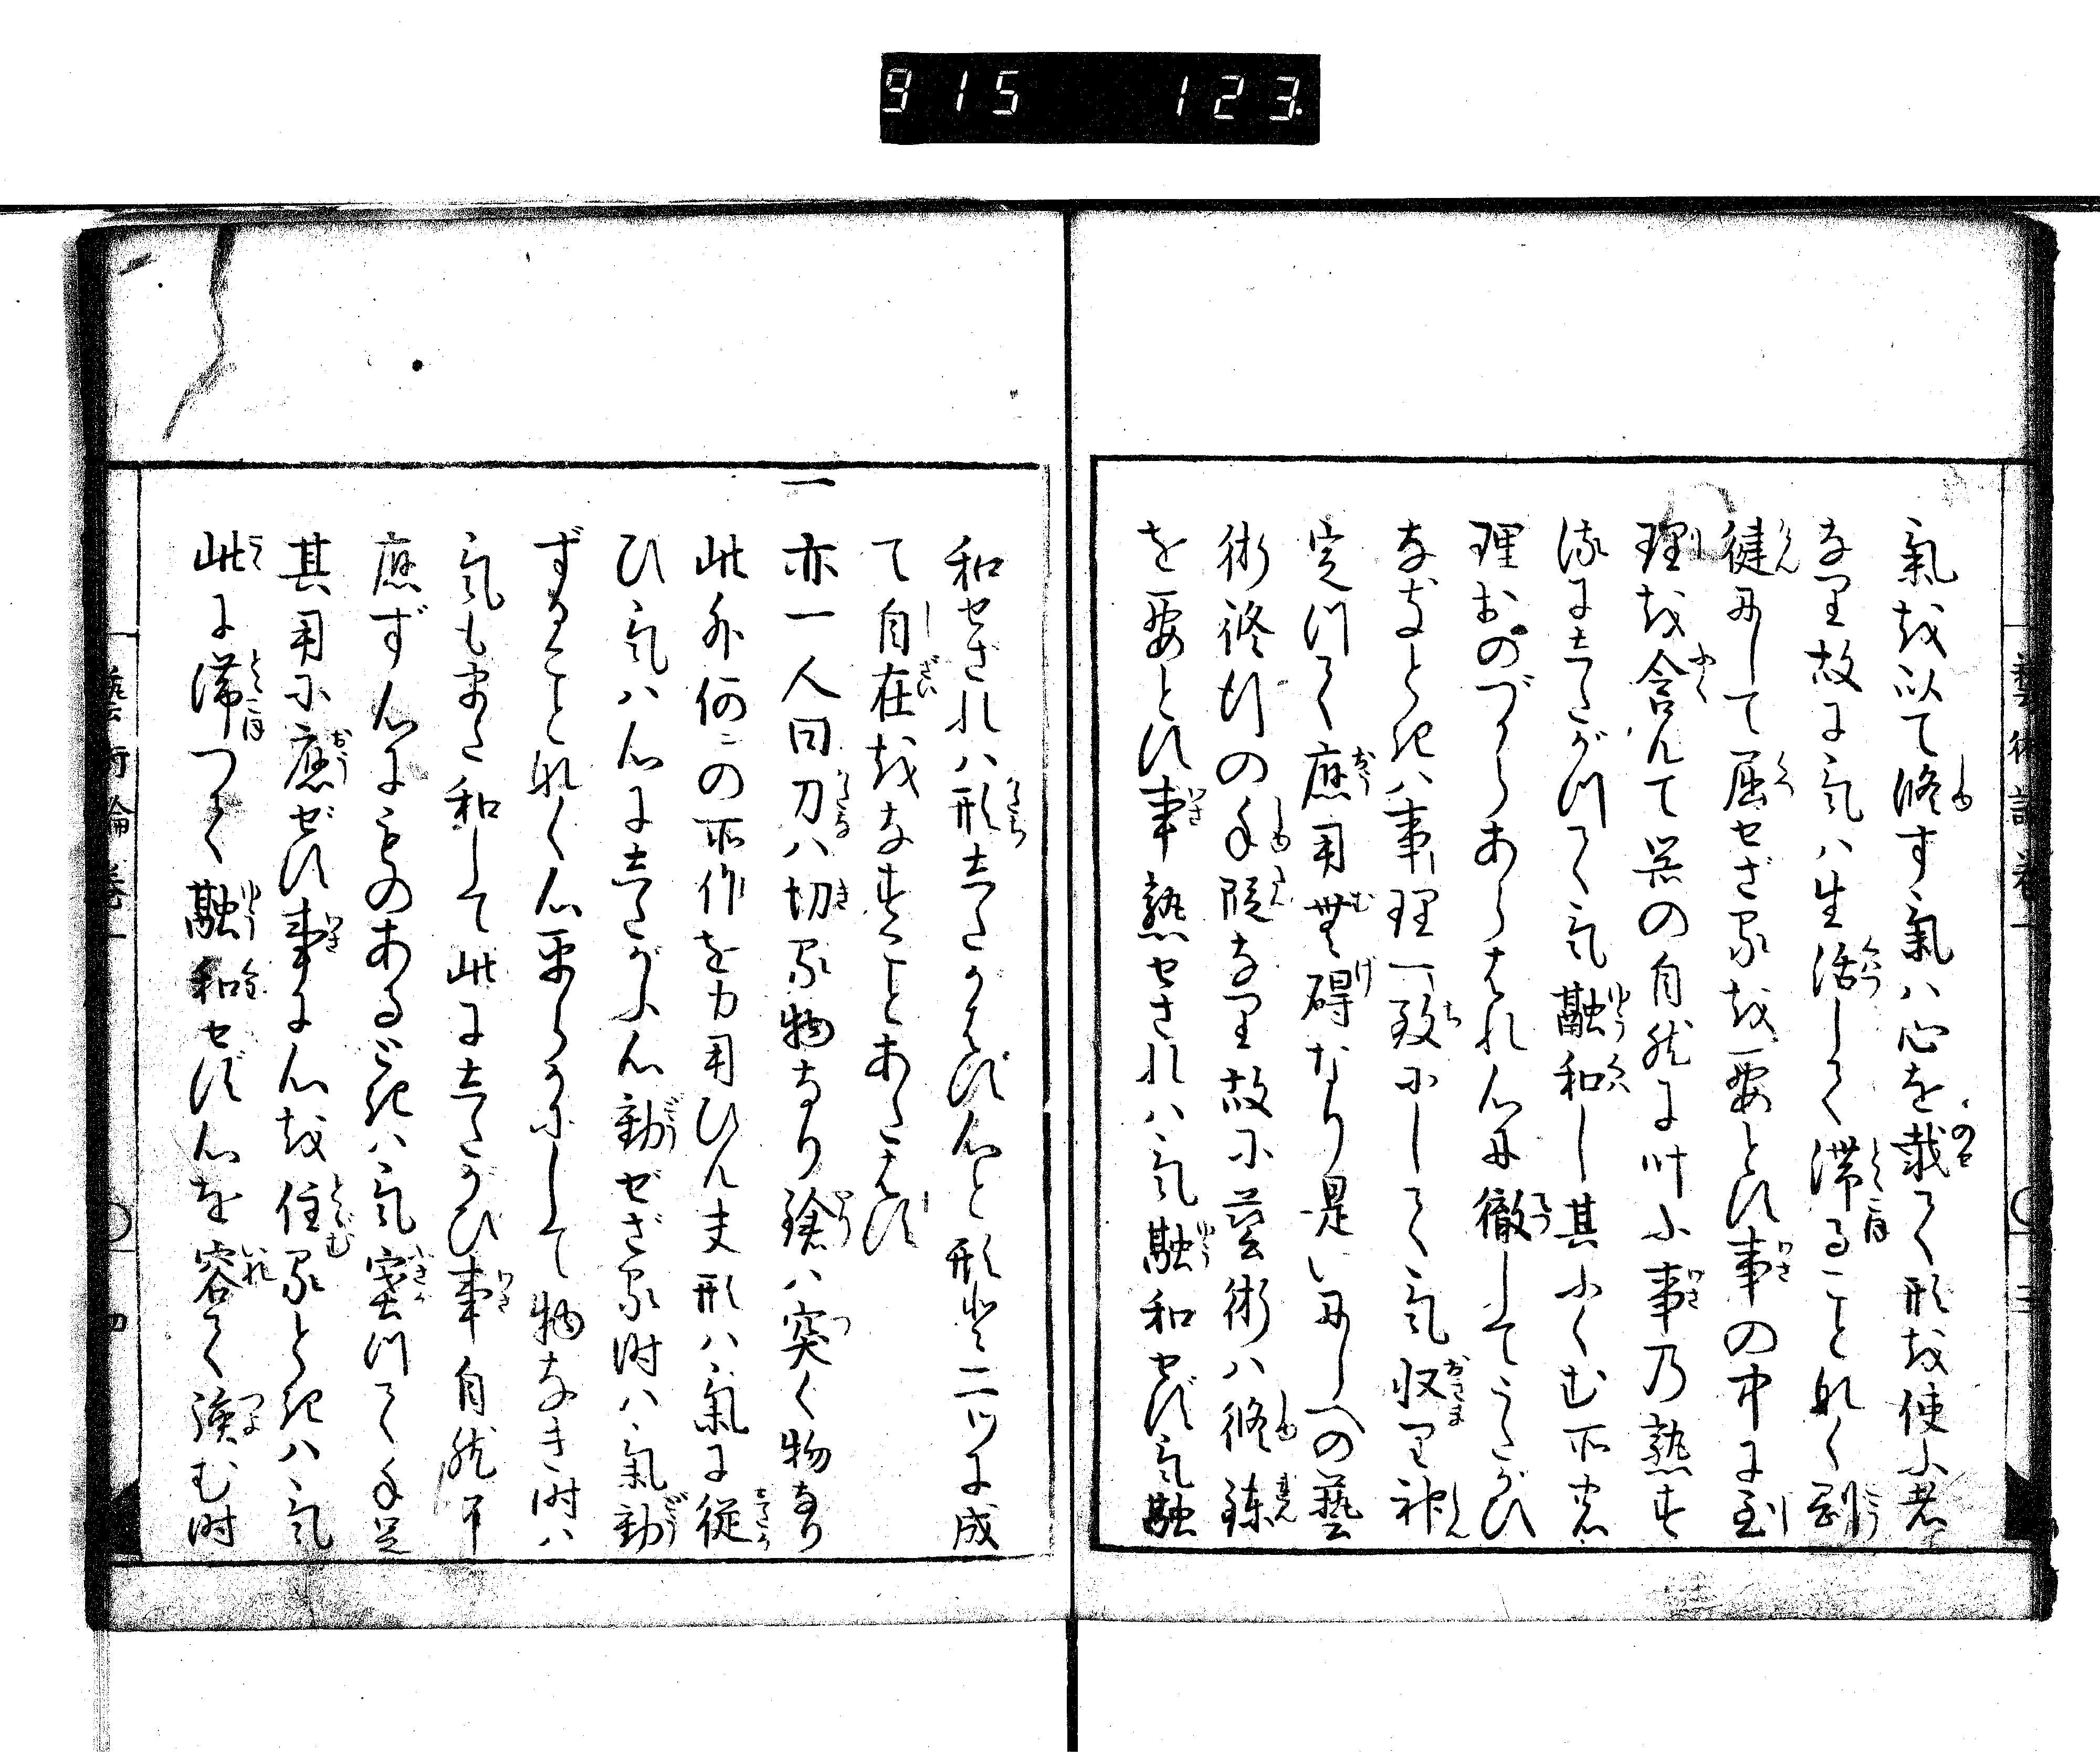 915 123
藝術論巻一 ○ 三
氣を以て修す氣ハ心を載て形を使ふ者
なり故に気ハ生活して滞ることなく剛
健にして屈せざるを要とす事の中に至
理を含んて器の自然に叶ふ事の熟す
るにしたがつて気融和し其ふくむ所の
理おのづからあらはれ心に徹してうたがひ
なきときハ事理一致にして気収り神
定つて應用無礙なり是いにしへの藝
術修行の手段なり故に藝術ハ修錬
を要とす事熟せされハ気融和せず気融
和せざれハ形したがはず心と形と二ツに成
て自在をなすことあたはず
一亦一人曰刀ハ切る物なり鎗ハ突く物なり
此外何の所作を力用ひん夫形ハ氣に従
ひ気ハ心にしたがふ心動ぜざる時ハ氣動
ずることなく心平らかにして物なき時ハ
気もまた和して此にしたがひ事自然に
應ず心にものあるときハ気塞つて手足
其用に應ぜず事に心を住るときハ気
此に滞つて融和せず心を容て強む時
藝術論巻一 ○ 四